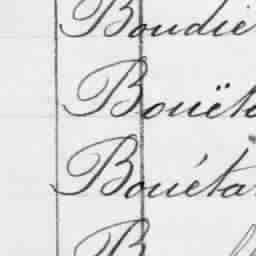 Boudie
Bouët
Bouéta